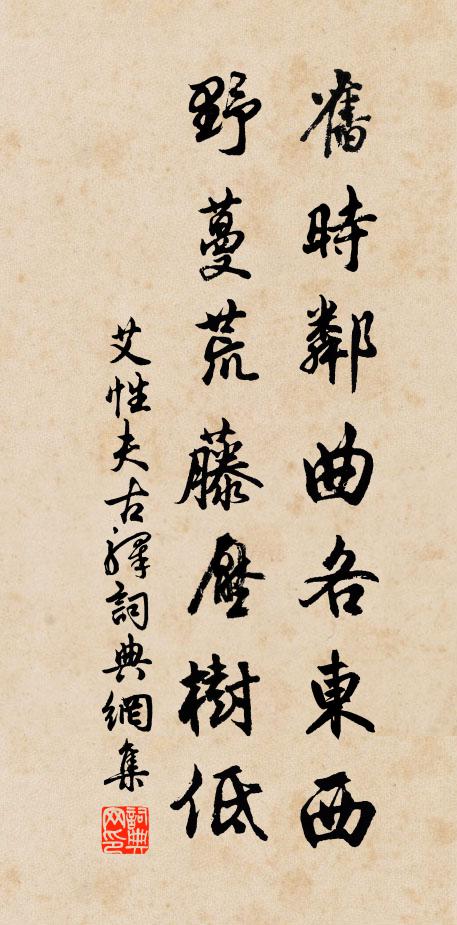 舊時鄰曲各東西
野蔓荒藤壓樹低
艾性夫古譯詞典網集
詞典網印